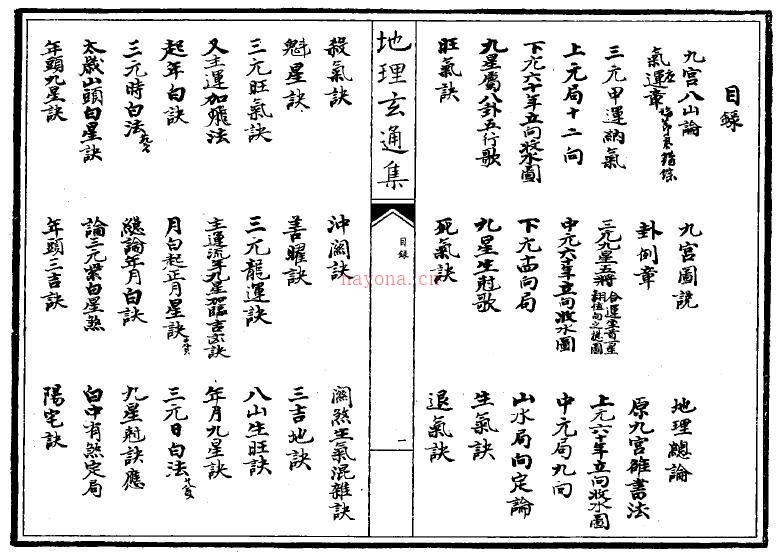 目録
九宮八山論 九宮圖説 地理總論
氣運章 卦例章 原九宮雒書法
三元甲運納氣 三元九星五將 上元六十年立向收水圖
上元局十二向 中元六十年立向收水圖 中元局九向
下元六十年立向收水圖 下元十四向局 山水局向定論
九星屬八卦五行歌 九星生尅歌 生氣訣
旺氣訣 死氣訣 退氣訣
地理玄通集
目録
一
殺氣訣 沖關訣 關煞生氣混雜訣
魁星訣 善曜訣 三吉地訣
三元旺氣訣 三元龍運訣 八山生旺訣
又主運加飛法 主運流年九星加臨吉凶訣 年月九星訣
起年白訣 月白起正月星訣 三元日白法
三元時白法 總論年月白訣 九星尅訣應
太歲山頭白星訣 論三元紫白星煞 白中有煞定局
年頭九星訣 年頭三吉訣 陽宅訣
nayona.cn